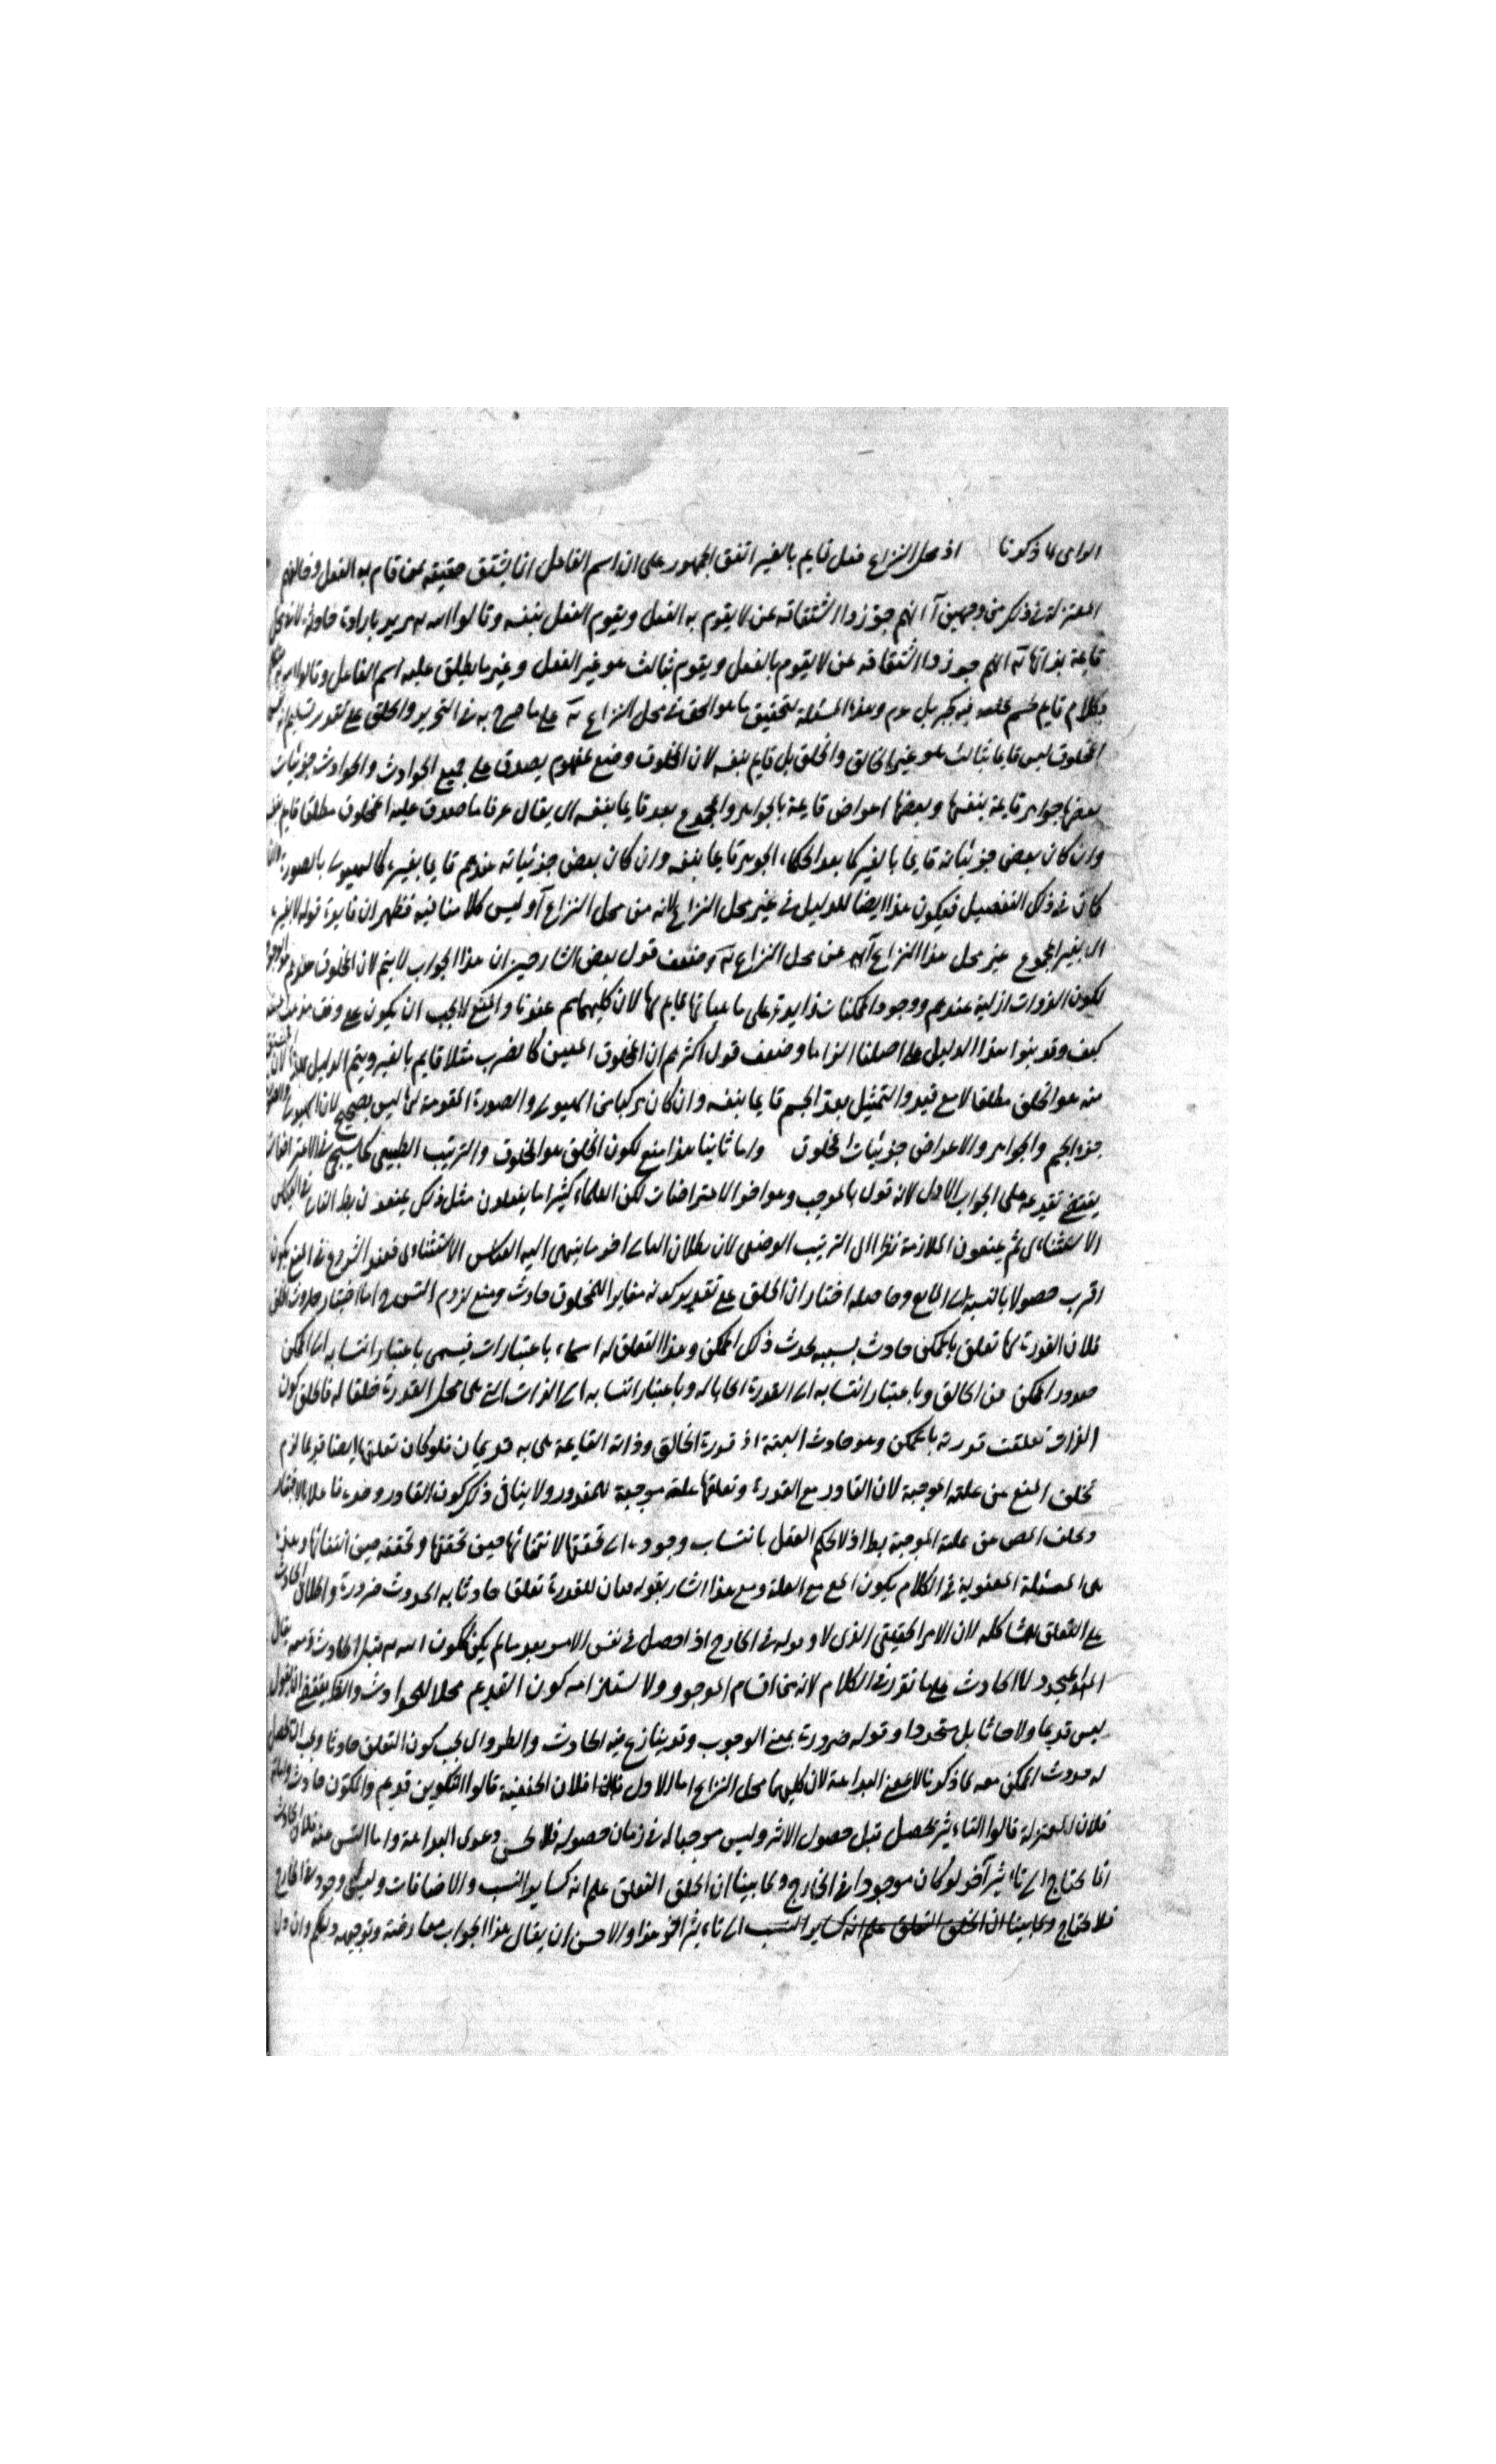 اذ محل النزاع فعل قايم بالغير اتفق الجمهور على ان اسم الفاعل انما يشتق حقيقة ممن قام به الفعل وخالفهم
المعتزلة في ذلك من وجهين آ انهم جوزوا اشتقاقه عن لا يقوم به الفعل ويقوم الفعل بنفسه وقالوا الله مريد بارادة حادثة
قايمة بذاتها انهم جوزوا اشتقاقه عن لا يقوم بالفعل ويقوم بثالث هو غير الفعل وغير ما يطلق عليه اسم الفاعل وقالوا
بكلام قايم لجسم وهذه المسئلة لتحقيق ما هو الحق في محل النزاع على ما صرح به في التحرير والخلق على تقدير
المخلوق ليس قايما بثالث هو غير الخالق والخلق بل قايم بنفسه لان المخلوق وضع لمفهوم يصدق على جميع الحوادث والحوادث جزئيات
بعضها جواهر قايمة بنفسها وبعضها اعراض قايمة بالجواهر والمجموع يعد قايما بنفسه ان يقال عرفا ما صدق عليه المخلوق مطلقا قايم
وان كان بعض جزئياته قايما بالغير كما يعد الحكماء الجوهر قايما بنفسه وان كان بعض جزئياته عندهم قايما بغيره كالهيولى بالصورة
كان في ذلك التفصيل فيكون هذا ايضا للدليل في غير محل النزاع لانه من محل النزاع آ وليس كلامنا فيه فظهر ان فايدة قوله
غير محل هذا النزاع من محل النزاع وضعف قول بعض الشارحين ان هذا الجواب لا يتم لان المخلوق
لكون الذوات ازلية عندهم ووجود الممكنات زايدة على ماهياتها قايم بها لان كليهما هم عندنا والمنع لا يجب ان يكون على وفق مذهب
كيف وقد بنوا هذا الدليل على اصلنا الزاما وضعف قول اكثرهم ان المخلوق المعين كالضرب مثلا قايم بالغير ويتم الدليل
منه هو الخلق مطلقا لا مع قيد والتمثيل بعد الجسم قايما بنفسه وان كان مركبا من الهيولى والصورة المقومة لها ليس بصحيح لان الهيولى
جزء الجسم والجواهر والاعراض جزئيات المخلوق واما ثانيا هذا منع لكون الخلق هو المخلوق والترتيب الطبيعي كما سيجيء في الاعتراضات
يقتضي تقديمه على الجواب الاول لانه قول بالموجب وهو اخر الاعتراضات لكن العلماء كثيرا ما يفعلون مثل ذلك
الاستثنائي ثم يمنعون الملازمة نظرا الى الترتيب الوضعي لان بطلان التالي اخر ما ينتهي اليه القياس الاستثنائي فعند الشروع في المنع يكون
اقرب حصولا بالنسبة الى المانع وحاصله اختار ان الخلق على تقدير كونه مغايرا للمخلوق حادث ومنع لزوم التس اما اختيار حدوث الخلق
فلان القدرة لها تعلق بالممكن حادث بسببه يحدث ذلك الممكن وهذا التعلق له اسماء باعتبارات فيسمى باعتبار انتسابه الى الممكن
صدور الممكن عن الخالق وباعتبار انتسابه الى القدرة ايجابا له وباعتبار انتسابه الى الذات التي هي محل القدرة خلقا له فالخلق كون
الذات تعلقت قدرته بالممكن وهو حادث البتة اذ قدرة الخالق وذاته القايمة هي به قديمان فلو كان تعلقها ايضا قديما لزم
تخلف المنع عن علته الموجبة لان القادر مع القدرة وتعلقها علة موجبة للمقدور ولا ينافي ذلك كون القادر وحده فاعلا بالاختيار
وتخلف عن علته الموجبة بط اذ لا يحكم العقل بانتساب وجوده الى تحققها لانتفائها حين تحققها وتحققه حين انتفائها وهذه
هي المسئلة المعنونة في الكلام بكون مع العلة ومع هذا اشار بقوله فان للقدرة تعلقا حادثا به الحدوث ضرورة واطلاق الحادث
على التعلق لان الامر الحقيقي الذي لا وجود له في الخارج اذا حصل في نفس الامر بعد ما لم يكن ككون الله قبل الحادث ومعه يقال
المتجدد لا الحادث على ما تقرر في الكلام لانه من اقسام الموجود ولا ستلزامه كون القديم محلا للحوادث
ليس قديما ولا حادثا بل متجددا وقوله ضرورة بمعنى الوجوب وقد ينازع فيه الحادث والطر وال يجب كون التعلق حادثا
له حدوث الممكن معه لما ذكرنا لا بمعنى البداهة لان كليهما محل النزاع اما الاول فلان الحنفية قالوا التكوين قديم والمكون حادث
فلان المعتزلة قالوا التاثير يحصل قبل حصول الاثر وليس موجبا له في زمان حصوله فلا يحسن دعوى البداهة واما التس عنه فلان الحادث
انما يحتاج الى تاثير آخر لو كان موجودا في الخارج ولما بينا ان الخلق التعلق علم انه كساير النسب والاضافات وليس وجود في الخارج
فلا يحتاج ولما بينا ان الخلق التعلق علم انه كساير النسب الى تاثير اخر هذا والاحسن ان يقال هذا الجواب معارضة وتوجيهه